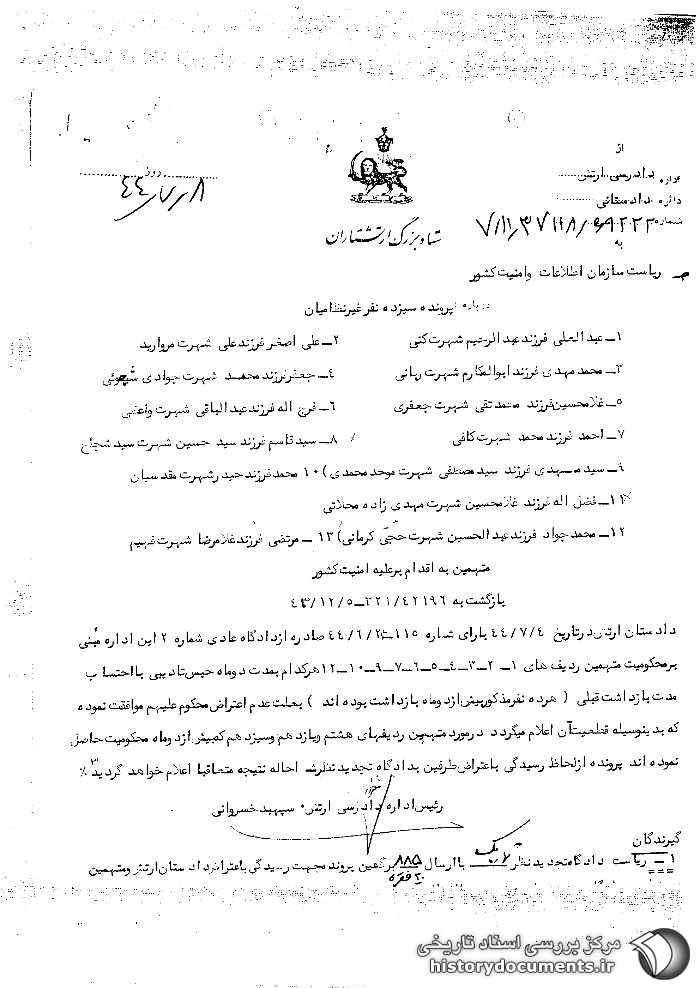 از
اداره دادرسی ارتش
دائره دادستانی
شماره
به
روز
۴۴/۷/۸
ستاد بزرگ ارتشتاران
ریاست سازمان اطلاعات وامنیت کشور
درباره پرونده سیزده نفر غیرنظامیان
۱ــ عبدالعلی فرزند عبدالرحیم شهرت کنی ۲ــ علی اصغر فرزند علی شهرت مروارید
۳ــ محمد مهدی فرزند ابوالمکارم شهرت ربانی ۴ــ جعفر فرزند محمد شهرت جوادی شجونی
۵ــ غلامحسین فرزند محمد تقی شهرت جعفری ۶ــ فرج اله فرزند عبدالباقی شهرت واعظی
۷ــ احمد فرزند محمد شهرت کافی ۸ــ سید قاسم فرزند سید حسین شهرت سید شجاع
۹ــ سید مهدی فرزند سید مصطفی شهرت موحد محمدی) ۱۰ محمد فرزند حیدر شهرت مقدسیان
۱۱ــ فضل اله فرزند غلامحسین شهرت مهدی زاده محلاتی
۱۲ــ محمد جواد فرزند عبدالحسین شهرت حجتی کرمانی) ۱۳ ــ مرتضی فرزند غلامرضا شهرت فهیم
متهمین به اقدام برعلیه امنیت کشور
بازگشت به ۳۲۱/۴۲۱۹۶ــ۴۳/۱۲/۵
دادستان ارتش در تاریخ ۴۴/۷/۴ بارای شماره ۱۱۵ــ صادره از دادگاه عادی شماره ۲ این اداره مبنی
بر محکومیت متهمین ردیف های ۱ــ ۲ــ۳ــ۴ــ۵ــ۶ــ۷ــ۹ــ۱۰ــ۱۲ هر کدام بمدت دوماه حبس تادیبی با احتساب
مدت بازداشت قبلی ( هر ده نفر مذکور بیش از دوماه بازداشت بوده اند ) بعلت عدم اعتراض محکوم علیهم موافقت نموده
که بدینوسیله قطعیت آن اعلام میگردد درمورد متهمین ردیفهای هشتم ویازدهم وسیزدهم که بیش از دوماه محکومیت حاصل
نموده اند پرونده ازلحاظ رسیدگی باعتراض طرفین بدادگاه تجدید نظر احاله نتیجه متعاقبا اعلام خواهد گردید٪
رئیس اداره دادرسی ارتش۰ سپهبد خسروانی
گیرندگان
۱ــ ریاست دادگاه تجدید نظر یک با ارسال ۸۸۵ برگ عین پرونده جهت رسیدگی باعتراض دادستان ارتش ومتهمین
مرکز بررسی اسناد تاریخی
historydocuments.ir